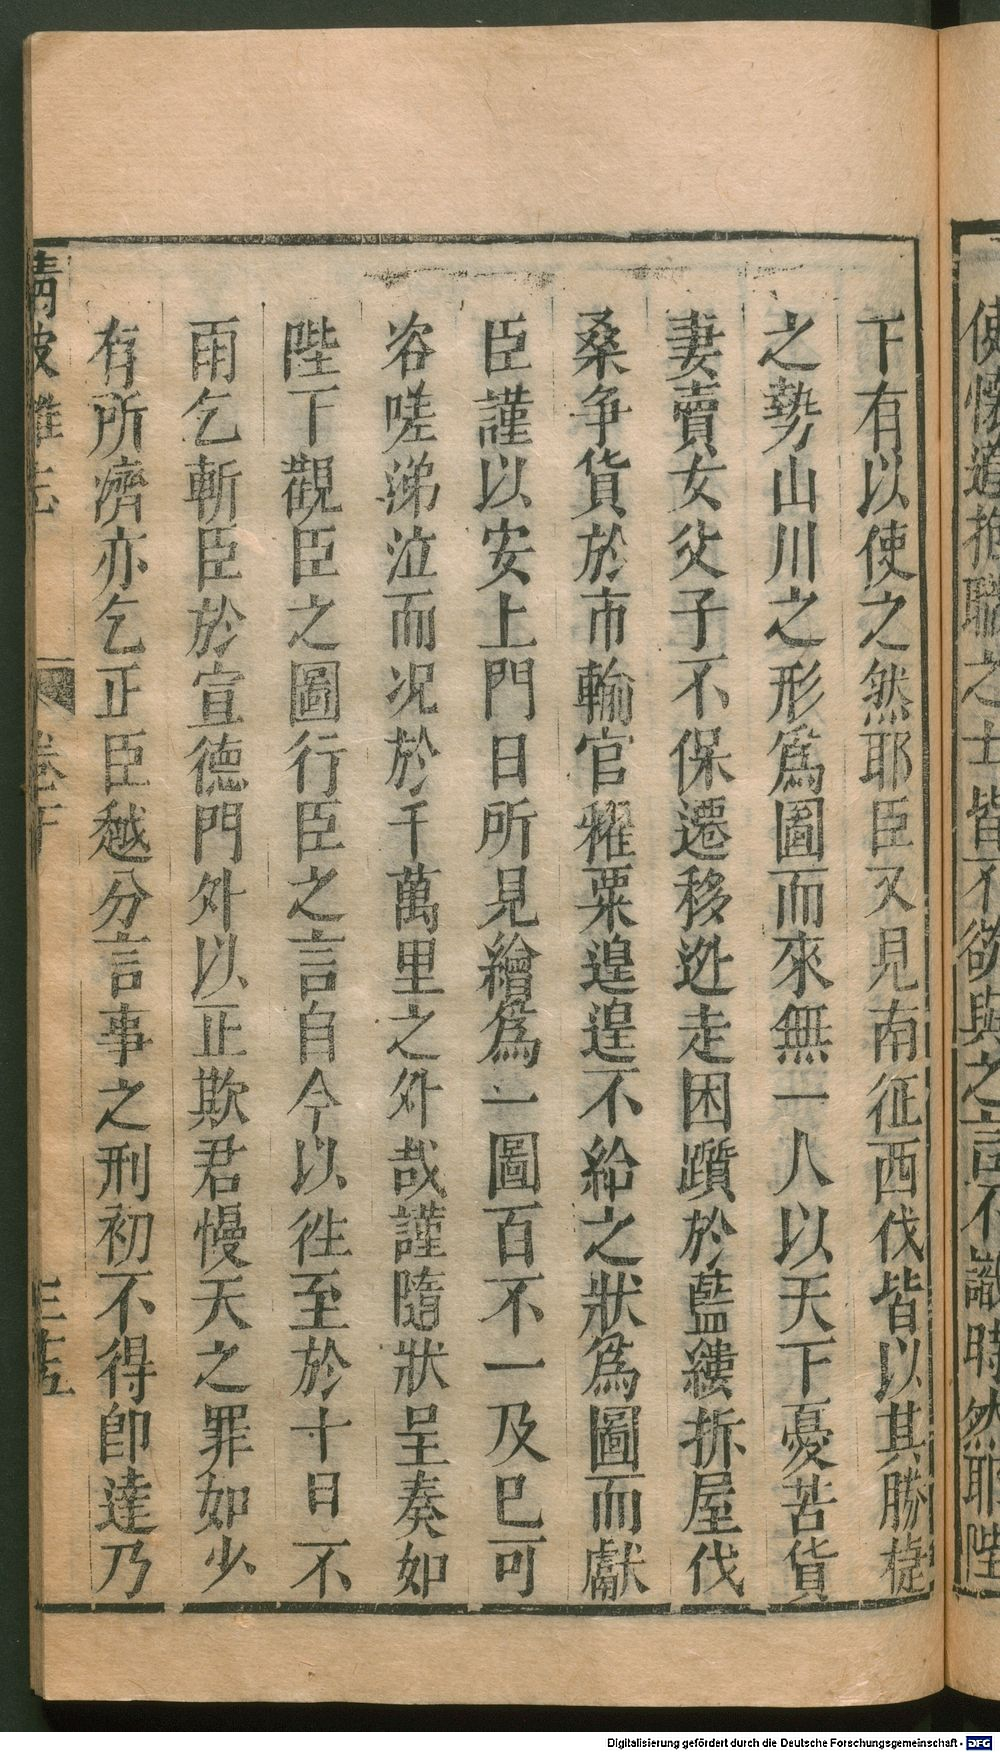 使懷道抱職之士皆不欲與之言不識時然耶陛
下有以使之然耶臣又見南征西伐皆以其勝㨗
之勢山川之形爲圖而來無一人以天下憂苦貨
妻賣女父子不保遷移逃走困躓於藍縷拆屋伐
桑争貨於市輸官糴粟遑遑不給之狀爲圖而獻
臣謹以安上門日所見繪爲一圖百不一及巳可
咨嗟涕泣而况於千萬里之外哉謹隨狀呈奏如
陛下觀臣之圖行臣之言自今以徃至於十日不
雨乞斬臣於宣德門外以正欺君慢天之罪如少
有所濟亦乞正臣越分言事之刑初不得卽達乃
清波雜志 卷下 三五
Digitalisierung gefördert durch die Deutsche Forschungsgemeinschaft - DFG